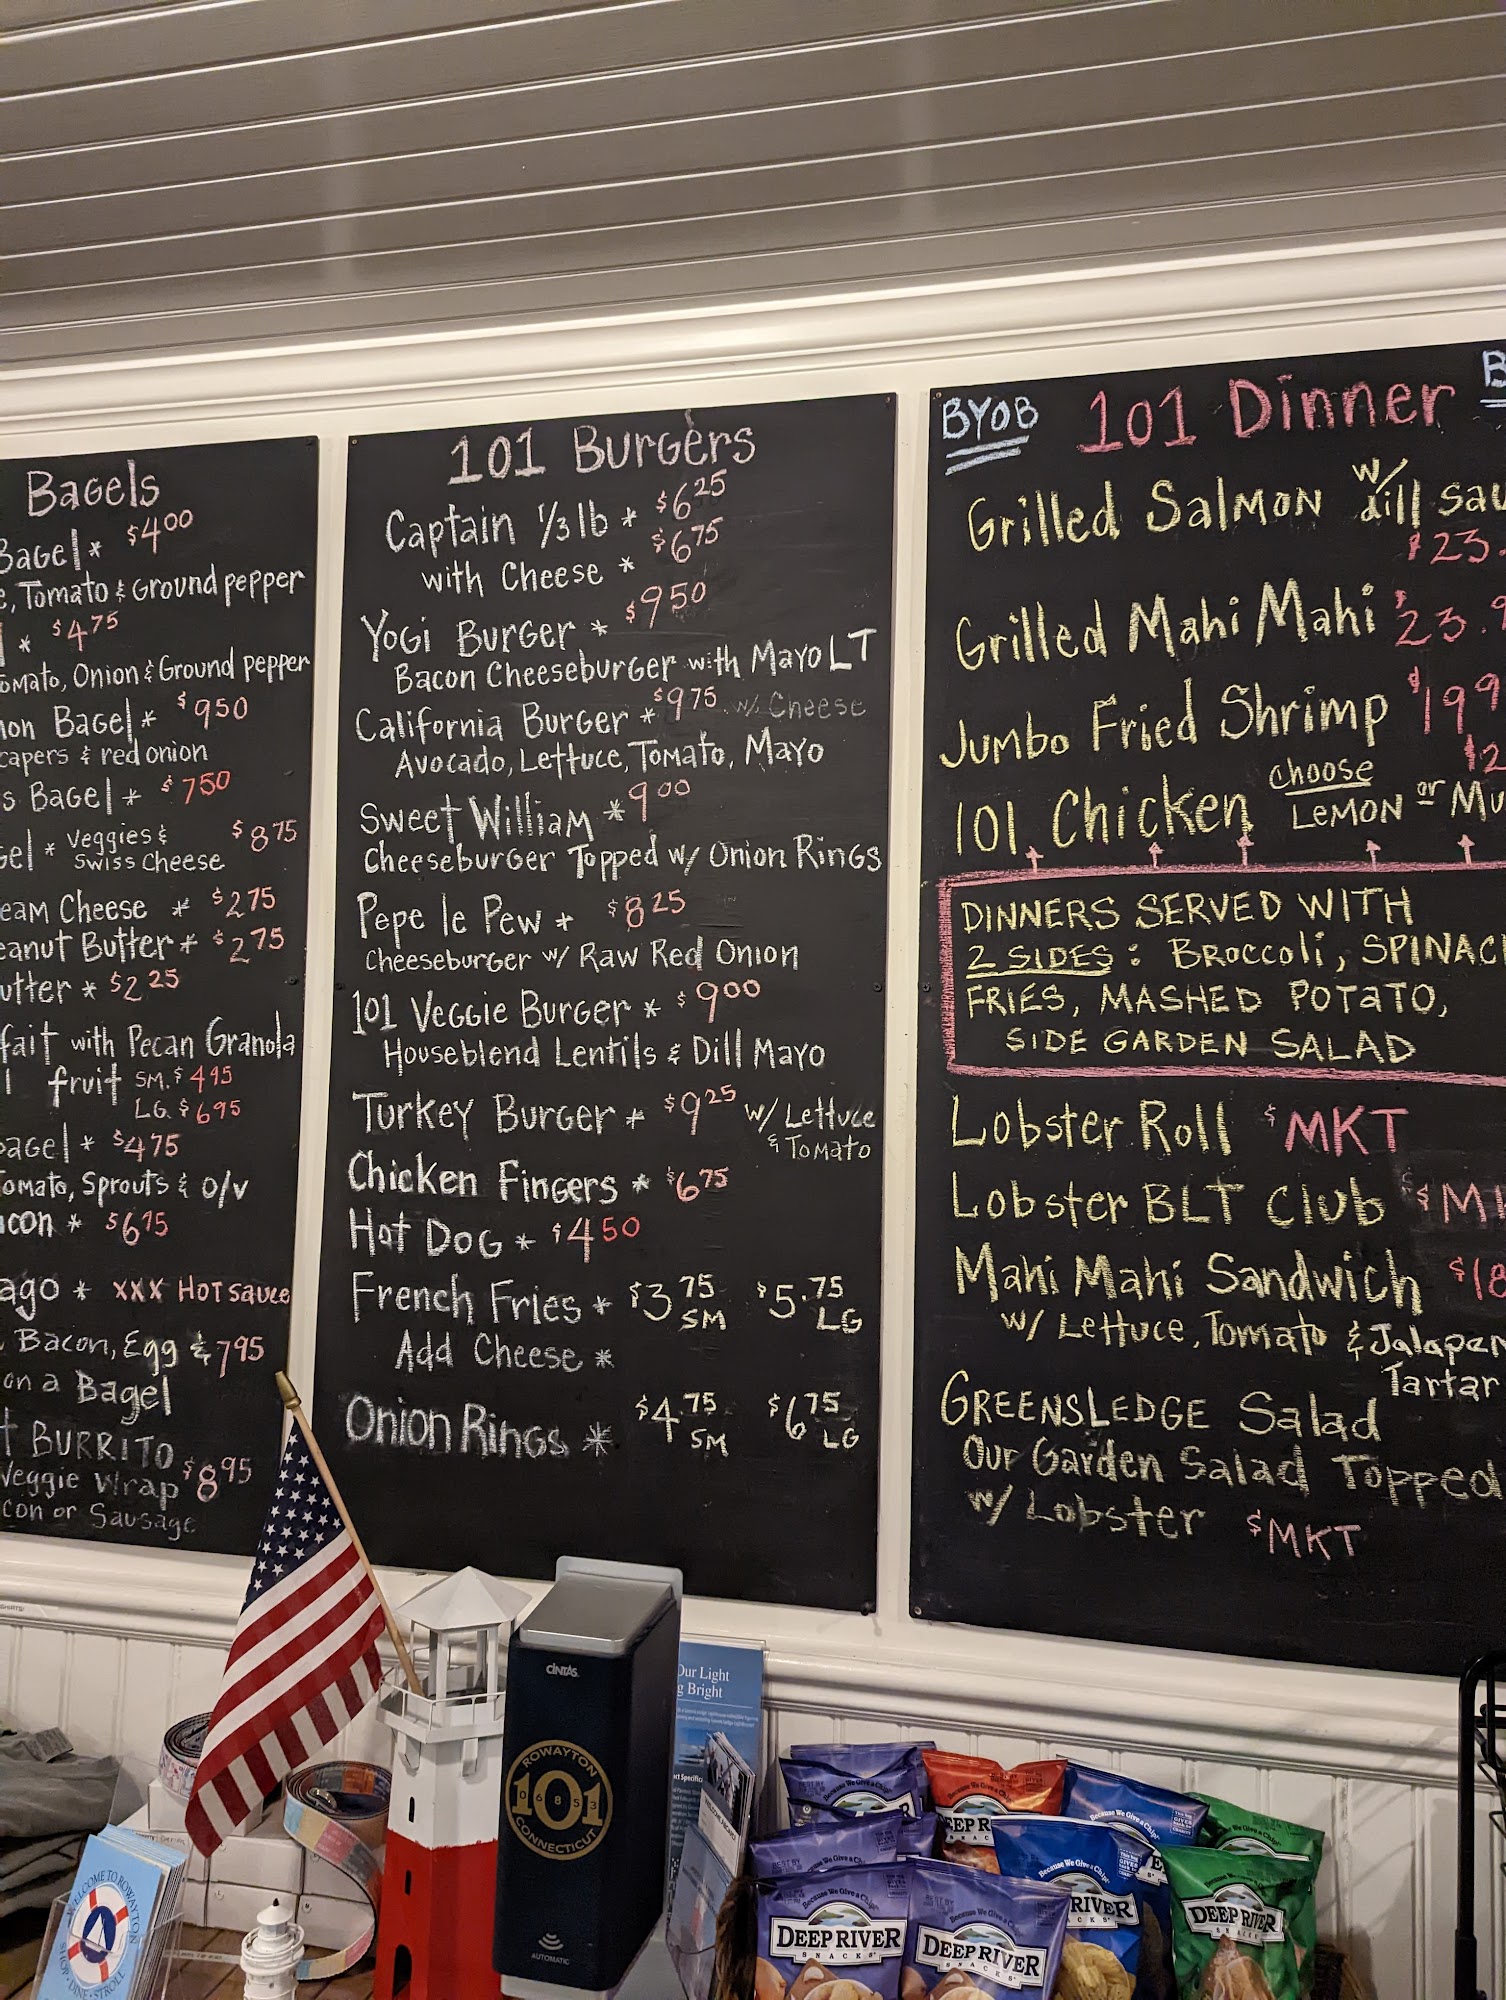 Bagels
Bagel * $4.00
Tomato & Ground pepper
* $4.75
Tomato, Onion & Ground pepper
Bagel * $9.50
capers & red onion
Bagel * $7.50
* Veggies & $8.75
Swiss Cheese
Cheese * $2.75
Butter * $2.75
* $2.25
with Pecan Granola
fruit SM. $4.95
LG. $6.95
* $4.75
Tomato, Sprouts & o/v
* $6.75
* XXX Hot sauce
Bacon, Egg & 7.95
on a Bagel
BURRITO
Veggie Wrap $8.95
or Sausage
101 Burgers
Captain 1/3 lb * $6.25
with Cheese * $6.75
Yogi Burger * $9.50
Bacon Cheeseburger with Mayo LT
California Burger * $9.75 w/ Cheese
Avocado, Lettuce, Tomato, Mayo
Sweet William * 9.00
Cheeseburger Topped w/ Onion Rings
Pepe le Pew * $8.25
Cheeseburger w/ Raw Red Onion
101 Veggie Burger * $9.00
Houseblend Lentils & Dill Mayo
Turkey Burger * $9.25 w/ Lettuce
& Tomato
Chicken Fingers * $6.75
Hot Dog * $4.50
French Fries * $3.75 SM $5.75 LG
Add Cheese *
Onion Rings * $4.75 SM $6.75 LG
BYOB 101 Dinner
Grilled Salmon w/ dill
$23.
Grilled Mahi Mahi $23.
Jumbo Fried Shrimp
101 Chicken choose
LEMON or
DINNERS SERVED WITH
2 SIDES: Broccoli,
FRIES, MASHED POTATO,
SIDE GARDEN SALAD
Lobster Roll $MKT
Lobster BLT Club
Mahi Mahi Sandwich $18
w/ Lettuce, Tomato &
Tartar
GREENSLEDGE Salad
Our Garden Salad Topped
w/ Lobster $MKT
CINTAS
ROWAYTON
101
06853
CONNECTICUT
AUTOMATIC
Our Light
Bright
WELCOME TO ROWAYTON
SHOP • DINE • STROLL
Because We Give a Chip!
DEEP RIVER
SNACKS
Because We Give a Chip!
DEEP RIVER
SNACKS
Because We Give a Chip!
RIVER
DEEP RIVER
SNACKS